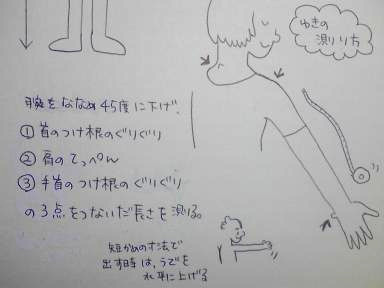 ゆきの
測り方
腕をななめ45度に下げ、
①首のつけ根のぐりぐり
②肩のてっぺん
③手首のつけ根のぐりぐり
の3点をつないだ長さを測る。
短かめの寸法で
出す時は、うでを
水平に上げる